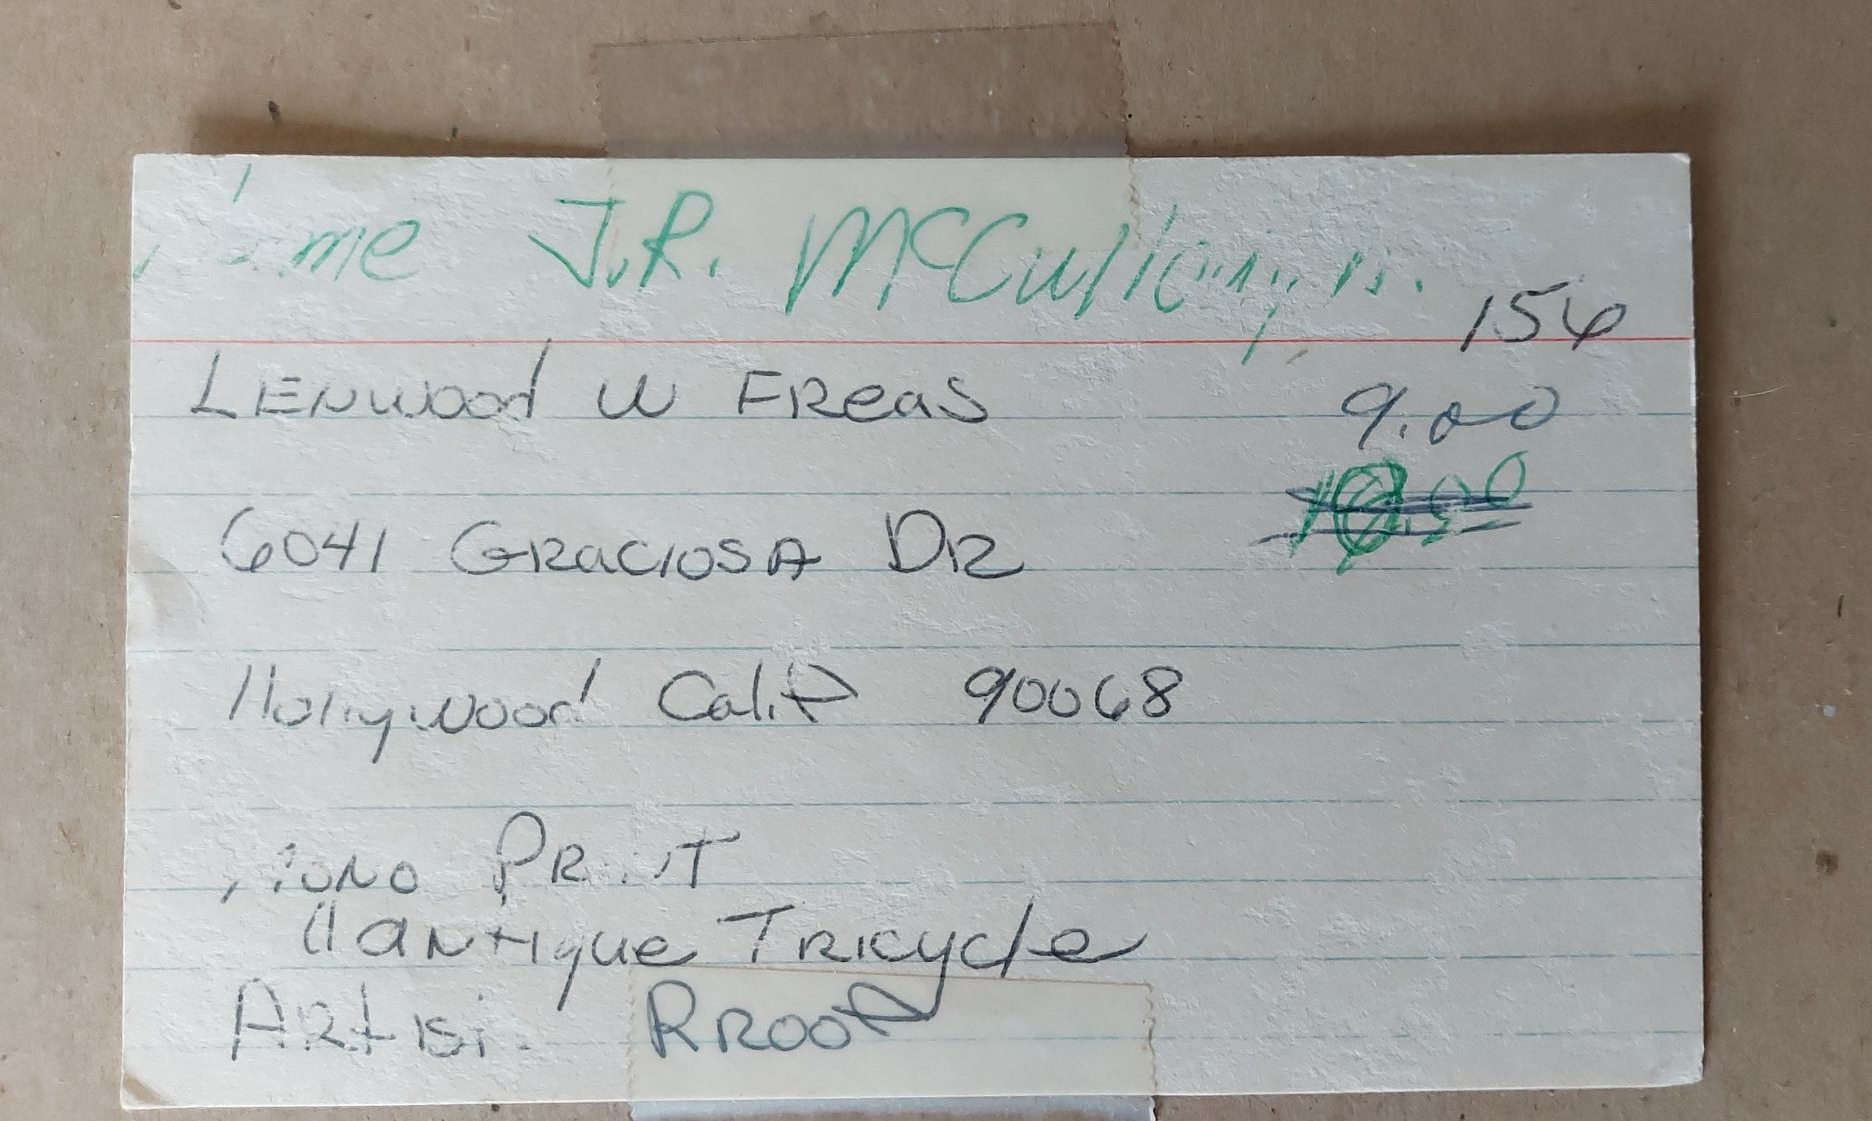 Name J.R. McCullough, Jr.
156
Lenwood W Freas
9.00
6041 Graciosa DR
Hollywood Calif 90068
Mono PRINT
"Antique Tricycle
Artist. RROOT